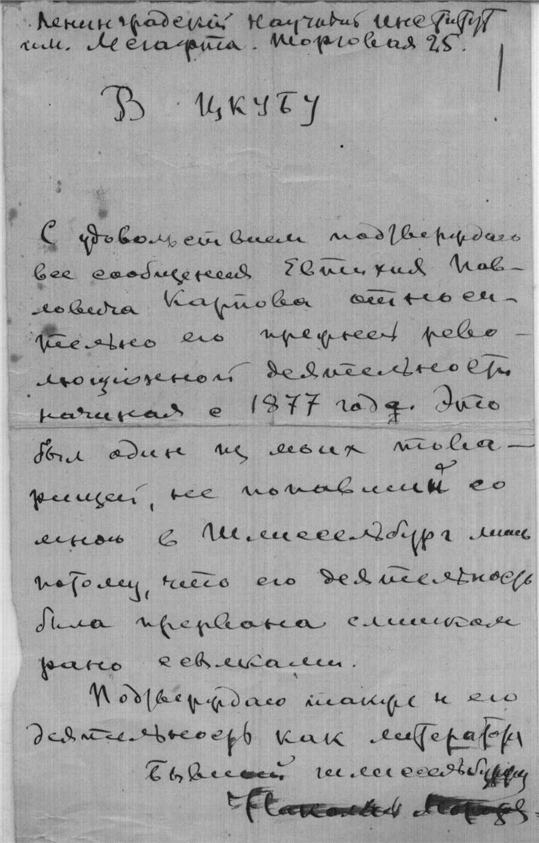 Ленинградский Научный Институт
им. Лесгафта. Торговая 25.
В ЦКУБУ
С удовольствием подтверждаю
все сообщения Евтихия Пав-
ловича Карпова относи-
тельно его прежней рево-
люционной деятельности
начиная с 1877 года. Это
был один из моих това-
рищей, не попавший со
мною в Шлиссельбург лишь
потому, что его деятельность
была прервана слишком
рано ссылками.
Подтверждаю также и его
деятельность как литератора
Бывший шлиссельбуржец
Николай Морозов.